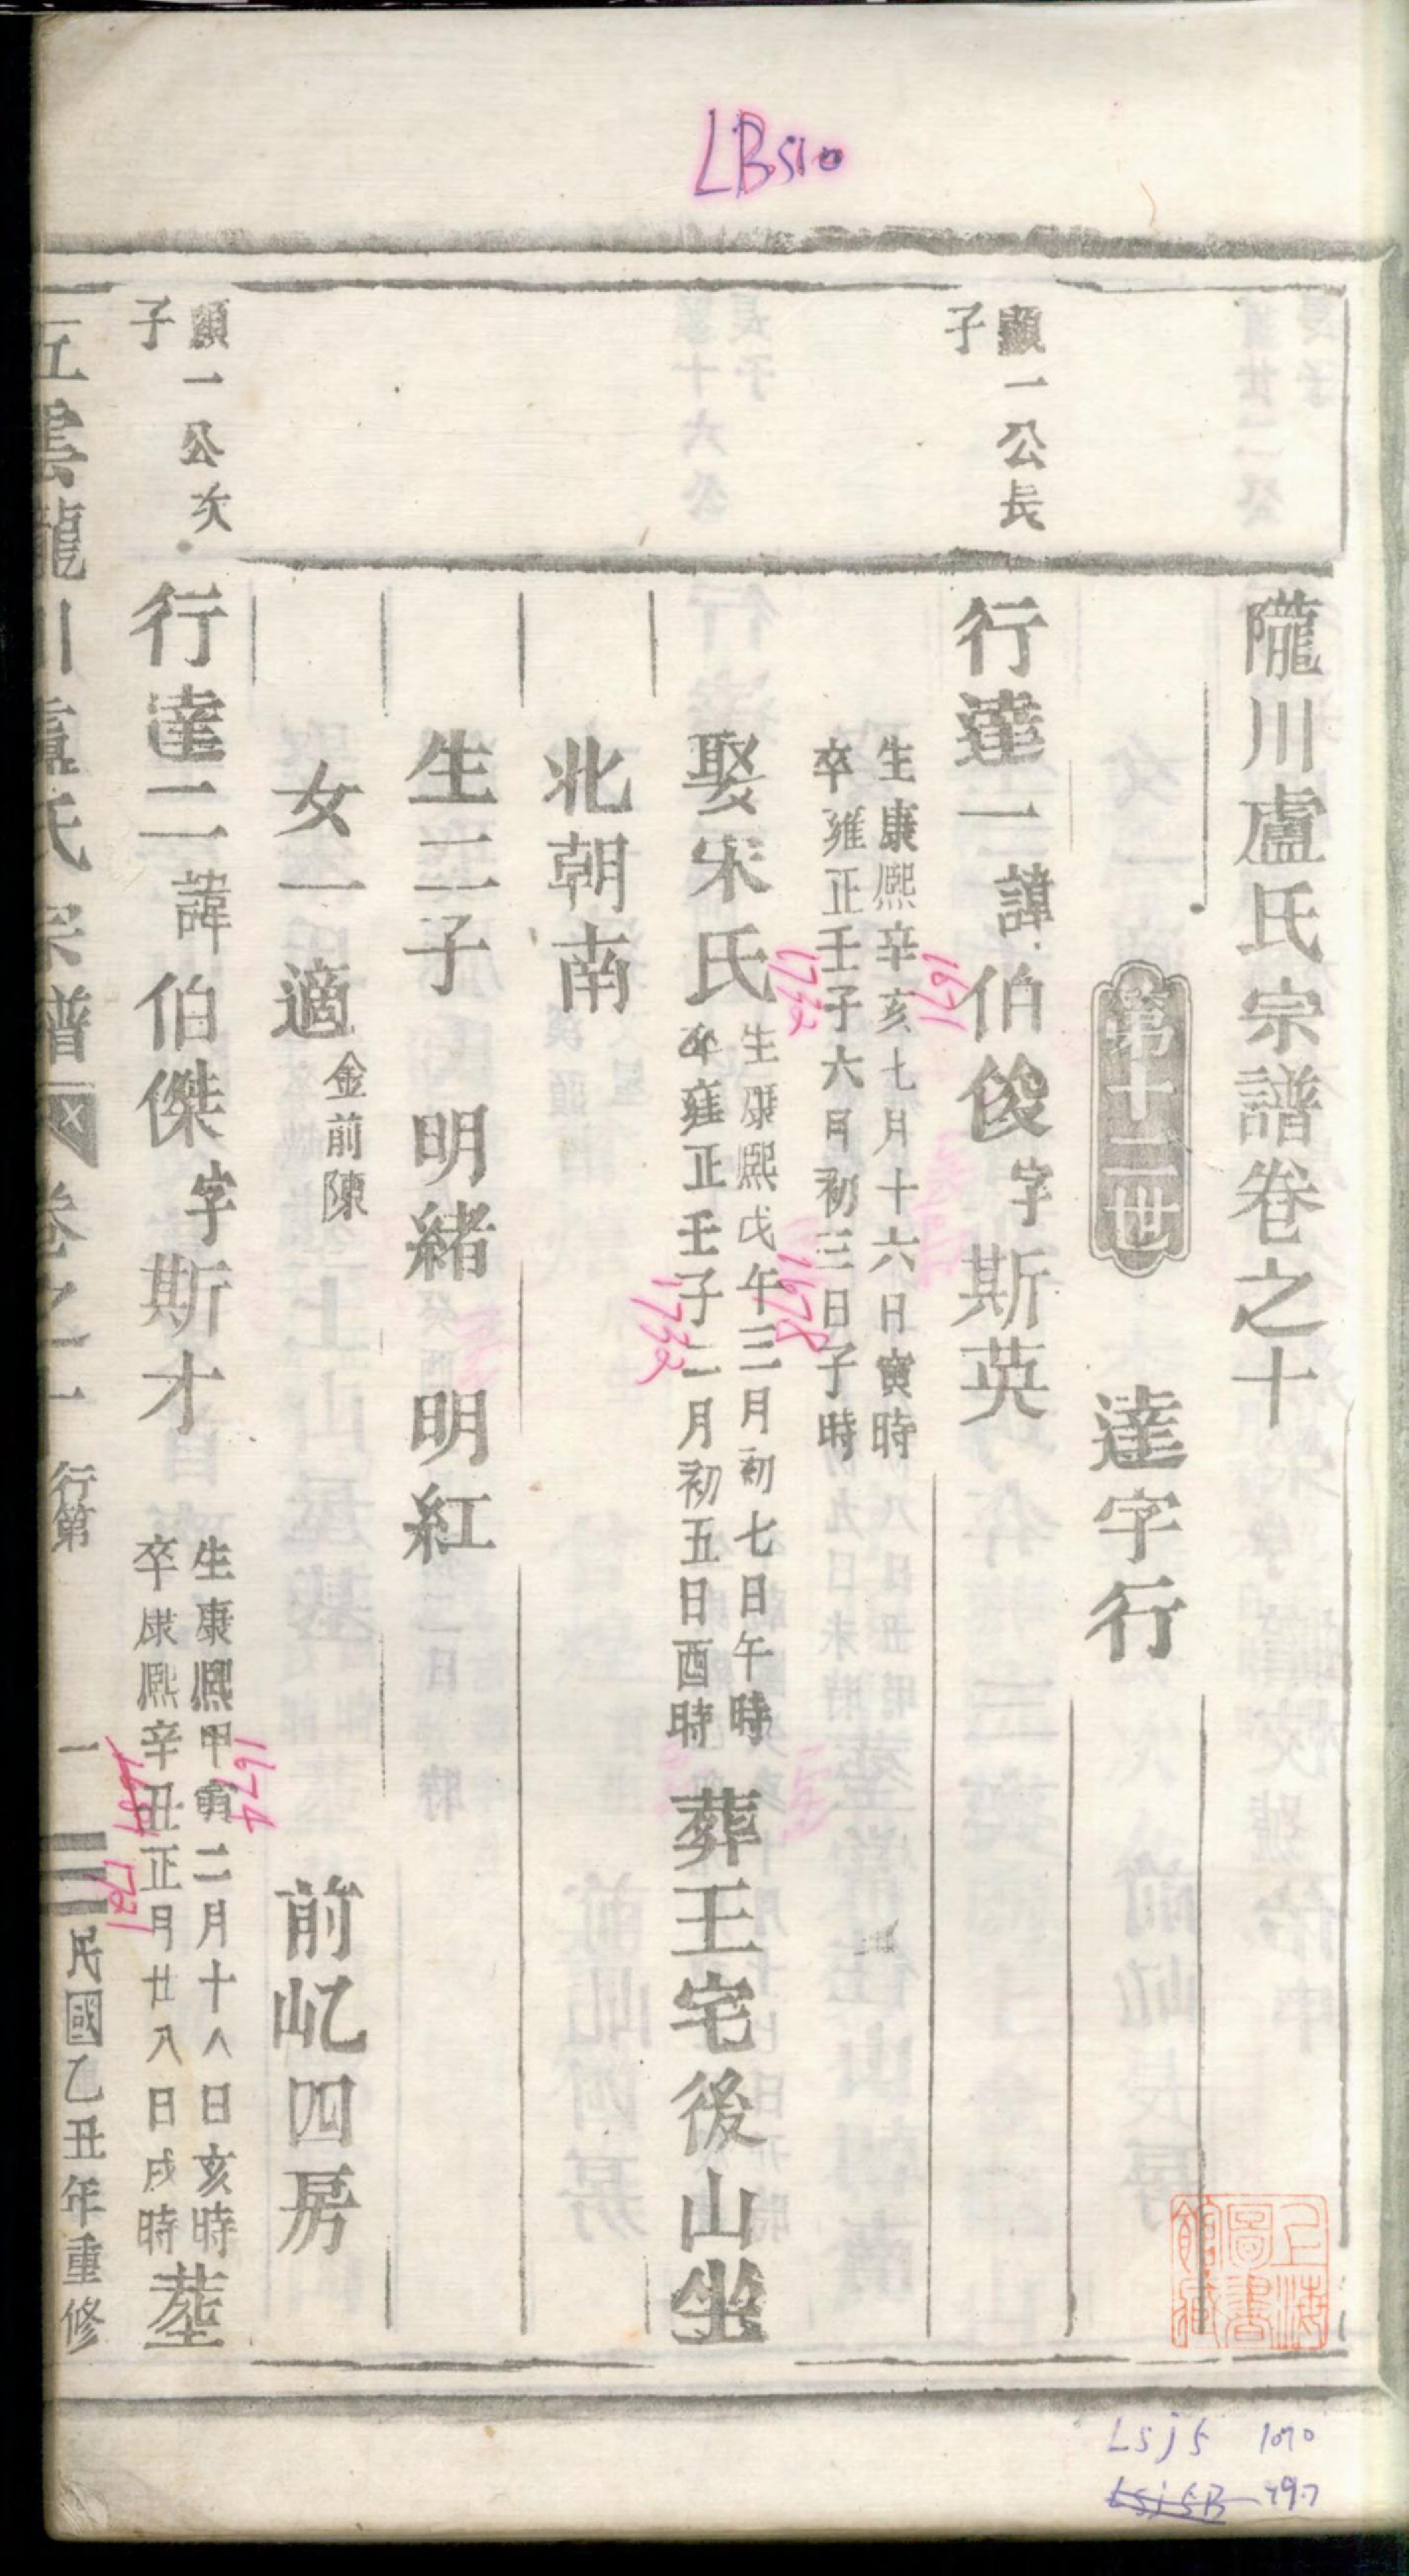 LB510
隴川盧氏宗譜卷之十
第十二世
達字行
顯一公長
子
行達一諱伯俊字斯英
生康熙辛亥七月十六日寅時
卒雍正壬子六月初三日子時
1671
1732
娶宋氏
生康熙戊午三月初七日午時
卒雍正壬子二月初五日酉時
1678
1732
葬王宅後山坐
北朝南
生二子 明緒 明紅
女一適金前陳
前屹四房
顯一公次
子
行達二諱伯傑字斯才
生康熙甲寅二月十八日亥時
卒康熙辛丑正月廿八日戌時
1674
1721
塟
五雲龍川盧氏宗譜 卷之一 行第 一 民國乙丑年重修
上海
圖書
館藏
Lsj5 1070
Lsj5B 797